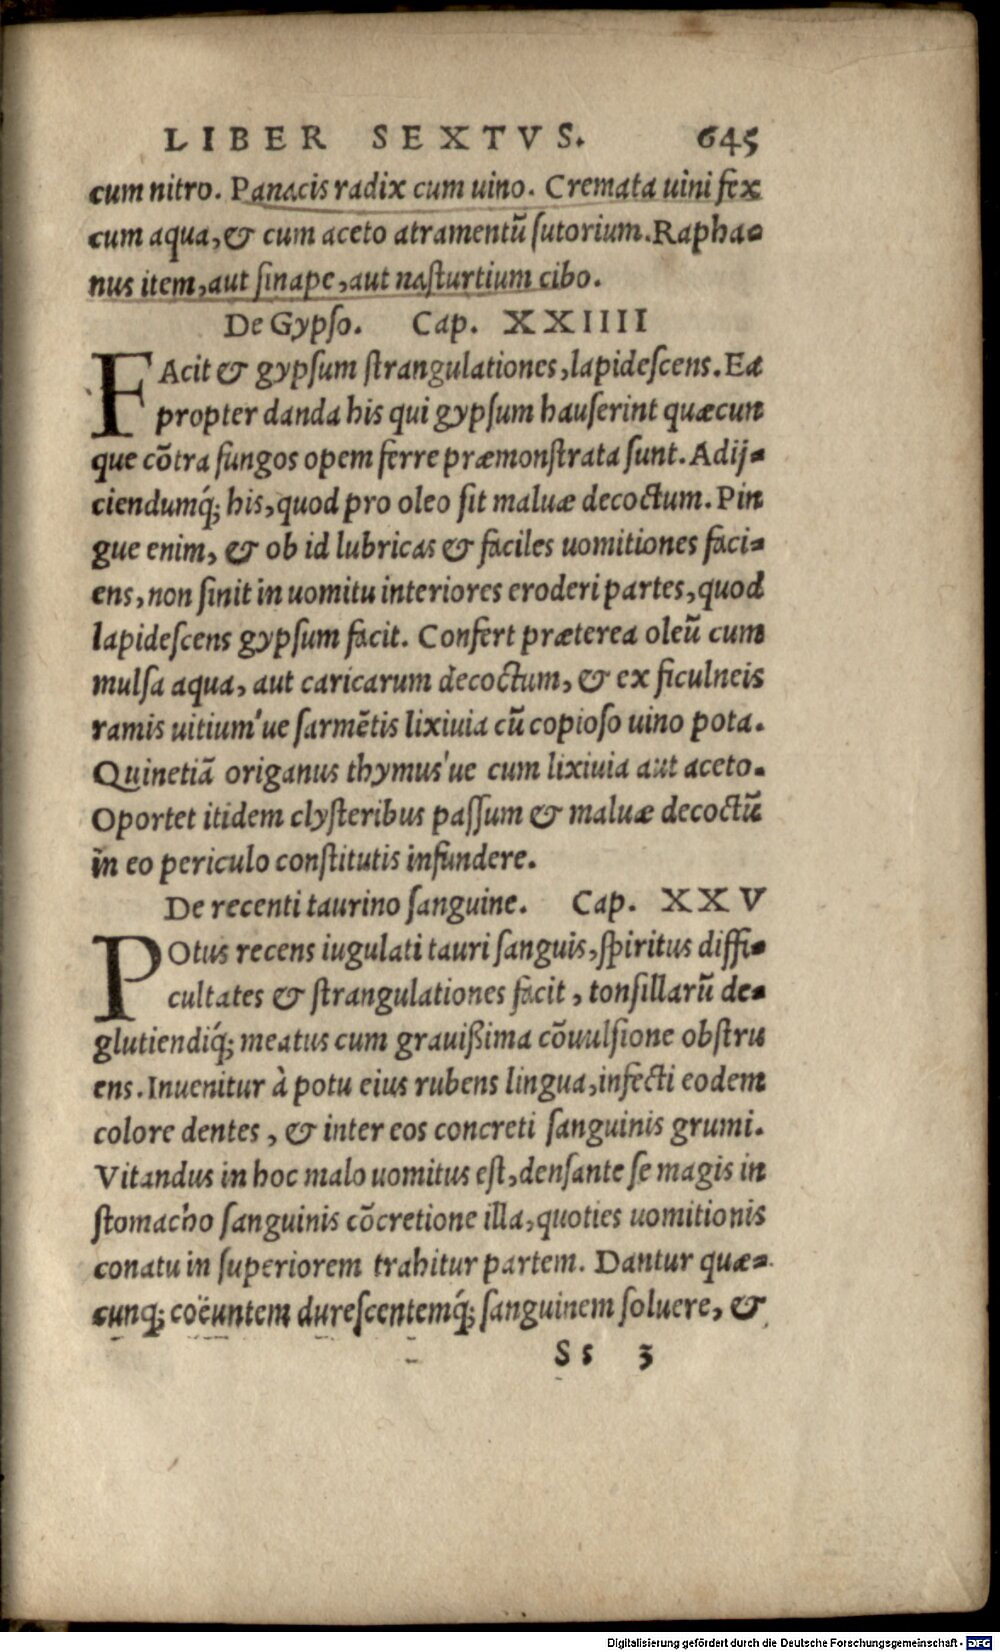 LIBER SEXTVS. 645
cum nitro. Panacis radix cum uino. Cremata uini fex
cum aqua, & cum aceto atramentū sutorium. Rapha-
nus item, aut sinape, aut nasturtium cibo.
De Gypso. Cap. XXIIII
FAcit & gypsum strangulationes, lapidescens. Ea
propter danda his qui gypsum hauserint quæcun
que cōtra fungos opem ferre præmonstrata sunt. Adij-
ciendumq́; his, quod pro oleo sit maluæ decoctum. Pin
gue enim, & ob id lubricas & faciles uomitiones faci-
ens, non sinit in uomitu interiores eroderi partes, quod
lapidescens gypsum facit. Confert præterea oleū cum
mulsa aqua, aut caricarum decoctum, & ex ficulneis
ramis uitium'ue sarmētis lixiuia cū copioso uino pota.
Quinetiā origanus thymus'ue cum lixiuia aut aceto.
Oportet itidem clysteribus passum & maluæ decoctū
in eo periculo constitutis infundere.
De recenti taurino sanguine. Cap. XXV
POtus recens iugulati tauri sanguis, spiritus diffi-
cultates & strangulationes facit, tonsillarū de-
glutiendiq́; meatus cum grauißima cōuulsione obstru
ens. Inuenitur à potu eius rubens lingua, infecti eodem
colore dentes, & inter eos concreti sanguinis grumi.
Vitandus in hoc malo uomitus est, densante se magis in
stomacho sanguinis cōcretione illa, quoties uomitionis
conatu in superiorem trahitur partem. Dantur quæ-
cunq; coëuntem durescentemq́; sanguinem soluere, &
Ss 3
Digitalisierung gefördert durch die Deutsche Forschungsgemeinschaft - DFG